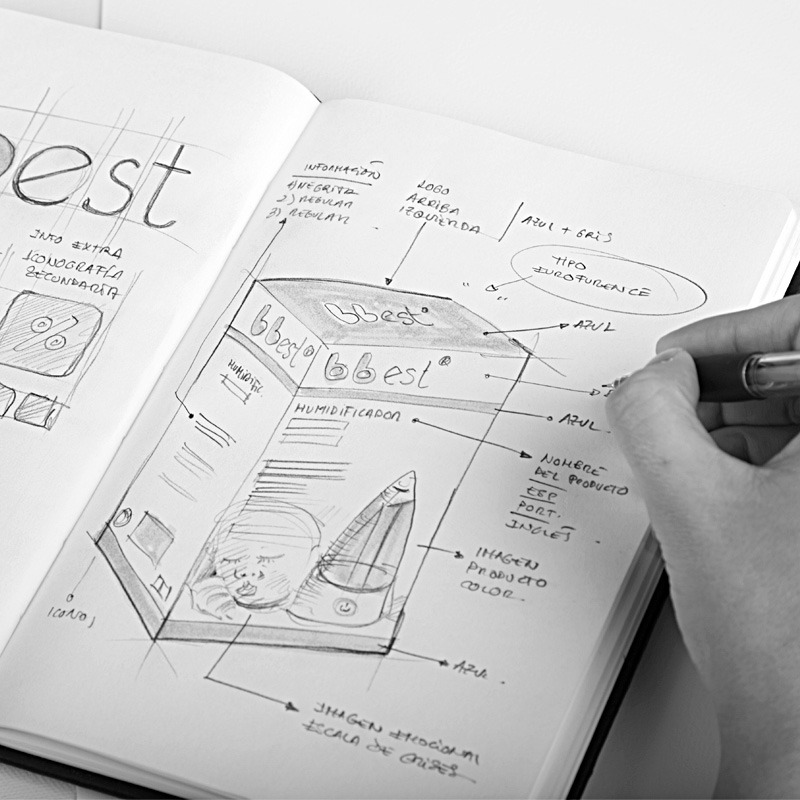 best
INFO EXTRA
ICONOGRAFÍA
SECUNDARIA
%
INFORMACIÓN
1) NEGRITA
2) REGULAR
3) REGULAR
LOGO
ARRIBA
IZQUIERDA
AZUL + GRIS
TIPO
EUROFURENCE
bbest®
AZUL
bbest®
bbest®
AZUL
HUMIDIFIC.
HUMIDIFICADOR
NOMBRE
DEL PRODUCTO
ESP
PORT.
INGLÉS
IMAGEN
PRODUCTO
COLOR
ICONOS
AZUL
IMAGEN EMOCIONAL
ESCALA DE GRISES